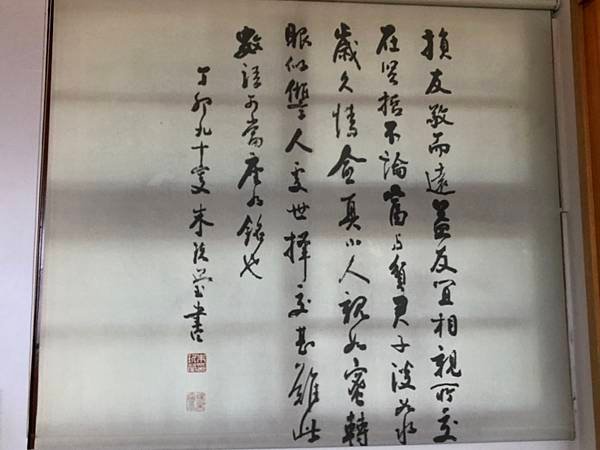 損友敬而遠益友宜相親所交
在賢哲不論富与貧君子淡如水
歲久情愈真小人親如蜜轉
眼似讎人處世擇交甚難此
數語可當座右銘也
丁卯九十叟朱玖瑩書